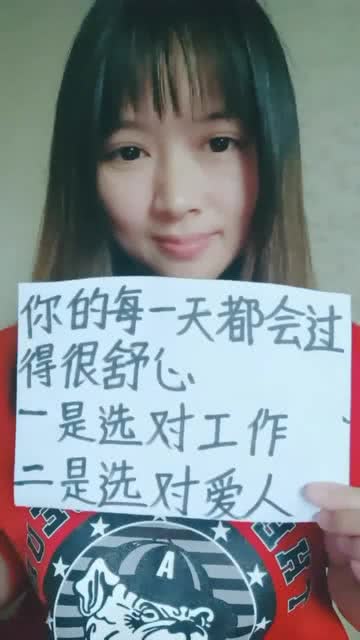 你的每一天都会过
得很舒心
一是选对工作
二是选对爱人
A